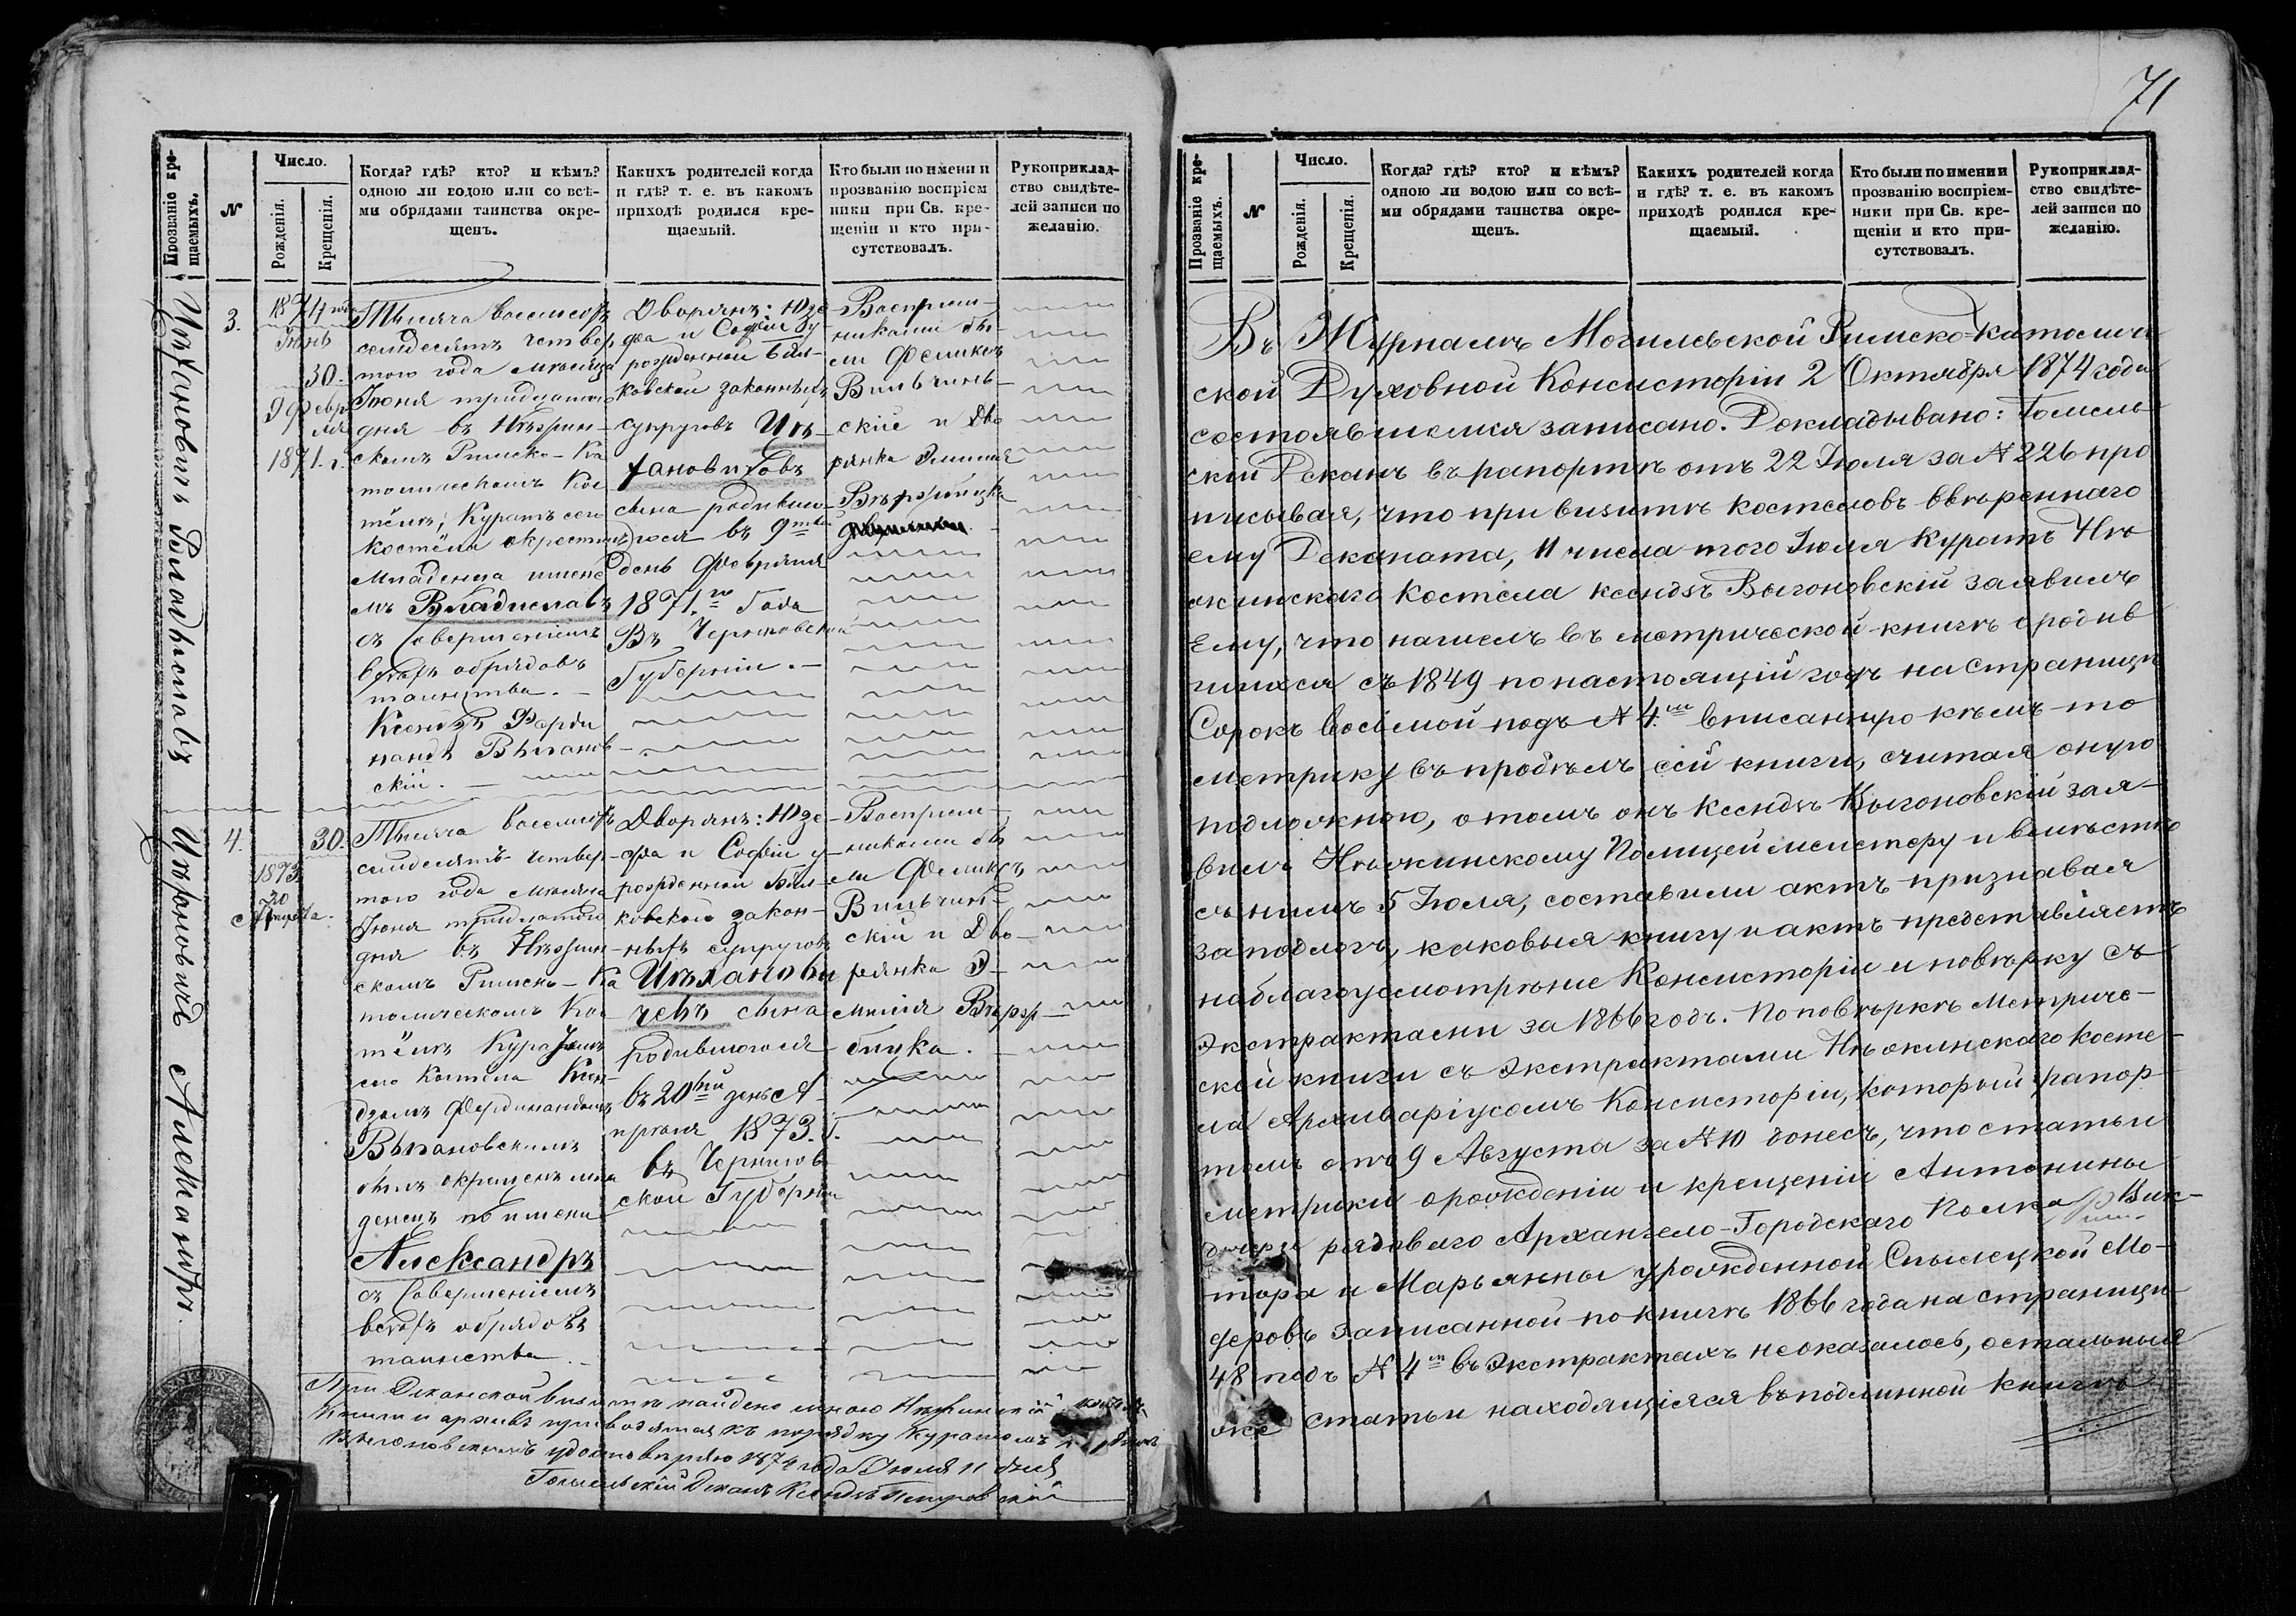 71
Прозваніе кре-
щаемыхъ.
N
Число.
Рожденія.
Крещенія.
Когда? гдѣ? кто? и кѣмъ?
одною ли водою или со всѣ-
ми обрядами таинства окре-
щенъ.
Какихъ родителей когда
и гдѣ? т. е. въ какомъ
приходѣ родился кре-
щаемый.
Кто были по имени и
прозванію воспріем
ники при Св. кре-
щеніи и кто при-
сутствовалъ.
Рукоприклад-
ство свидѣте-
лей записи по
желанію.
Цѣхановичъ Владиславъ
3.
1874 года
Іюнь
30.
9 Февра
ля
1871. г.
Тысяча восемсотъ
семдесятъ четвер
того года мѣсяца
Іюня тридцатого
дня въ Нѣжин-
скомъ Римско-Ка
толическомъ Кос
тёлѣ, Куратъ сего
костёла окрестилъ
младенца имене
мъ Владиславъ
съ совершеніемъ
всѣхъ обрядовъ
таинства.
Ксендзъ Ферди
нандъ Выганов-
скій.
Дворянъ: Юзе-
фа и Софіи у-
рожденной Бѣл-
ковской законныхъ
супруговъ Цѣ-
хановичовъ
сына родивша-
гося въ 9
день Февраля
1871.го Года
Въ Черниговской
Губерніи.
Воспріем-
никами бы-
ли Феликсъ
Вильчин-
скіе и Дво
рянка Эмилія
Вѣржбицка
Цѣхановичъ Александръ.
4.
30.
1873.
20
Апрѣля.
Тысяча восемсотъ
семдесятъ четвер-
того года мѣсяца
Іюня тридцатого
дня въ Нѣжин-
скомъ Римско-Ка
толическомъ Кос
тёлѣ Куратомъ
сего Костёла Ксен-
дзомъ Фердинандомъ
Выгановскимъ
былъ окрещенъ мла
денецъ по имени
Александръ
съ совершеніемъ
всѣхъ обрядовъ
таинства.
Дворянъ: Юзе-
фа и Софіи у-
рожденной Бѣл-
ковской закон-
ныхъ супруговъ
Цѣханови
чевъ сына
родившогося
въ 20тый день А-
прѣля 1873. г.
въ Чернигов-
ской Губерніи
Воспріем-
никами бы
ли Феликсъ
Вильчин-
скій и Дво-
рянка Э-
милія Вѣрж-
бицка.
При Деканской визитѣ найдено мною Нѣжинскій
Книги и архивъ приводятся къ порядку Куратомъ
Выгоновскимъ удостовѣряю 1874 года Іюля 11 дня
Гомельскій Деканъ Ксендзъ
Прозваніе кре-
щаемыхъ.
N
Число.
Рожденія.
Крещенія.
Когда? гдѣ? кто? и кѣмъ?
одною ли водою или со всѣ-
ми обрядами таинства окре-
щенъ.
Какихъ родителей когда
и гдѣ? т. е. въ какомъ
приходѣ родился кре-
щаемый.
Кто были по имени и
прозванію воспріем-
ники при Св. кре-
щеніи и кто при-
сутствовалъ.
Рукоприклад-
ство свидѣте-
лей записи по
желанію.
Въ Журналѣ Могилевской Римско-Католиче
ской Духовной Консисторіи 2 Октября 1874 года
состоявшемся записано. Докладывано: Гомель-
скій Деканъ въ рапортѣ отъ 22 Іюля за N 226 про
писывая, что при визитѣ костеловъ ввѣреннаго
ему Деканата, 11 числа того Іюля Куратъ Нѣ
жинскаго Костела ксендзъ Выгоновскій заявилъ
Ему, что нашелъ въ метрической книгѣ о родив
шихся съ 1849 по настоящій годъ на страницѣ
Сорокъ восьмой подъ N 4.мъ вписанную кѣмъ-то
метрику въ пробѣлѣ сей книги, считая оную
подложною, о томъ онъ Ксендзъ Выгоновскій зая-
вилъ Нѣжинскому Полицеймейстеру и вмѣстѣ
съ нимъ 5 Іюля, составили актъ признавая
за подлогъ, каковыя книгу и актъ представляетъ
на благоусмотрѣніе Консисторіи и повѣрку съ
Экстрактами за 1866 годъ. По повѣркѣ Метриче-
ской книги съ Экстрактами Нѣжинскаго косте-
ла Архиваріусомъ Консисторіи, который рапор-
томъ отъ 9 Августа за N 10 донесъ, что статьи
метрики о рожденіи и крещеніи Антонины
дочери рядоваго Архангело-Городскаго Полка Вик-
тора и Марьянны урожденной Смылецкой Мо-
деровъ записанной по книгѣ 1866 года на страницѣ
48 подъ N 4мъ въ Экстрактахъ не оказалось, остальныя
же статьи находящіяся въ подлинной книгѣ